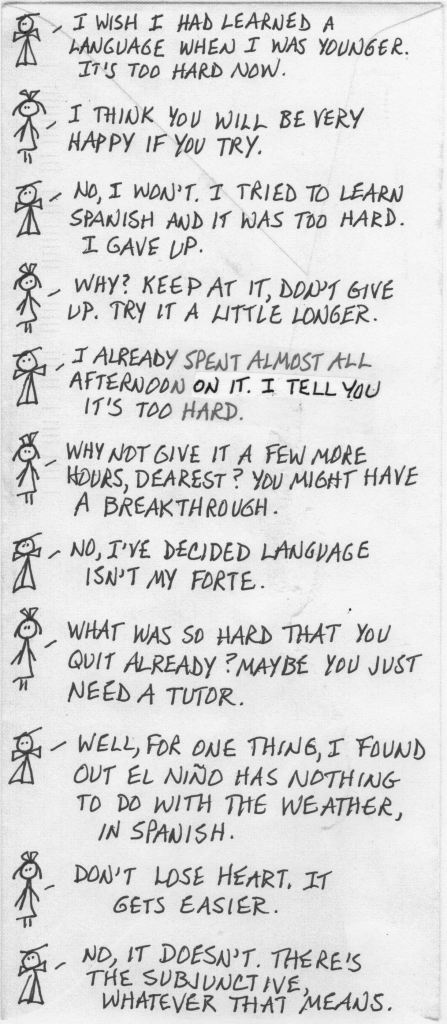 I WISH I HAD LEARNED A
LANGUAGE WHEN I WAS YOUNGER.
IT'S TOO HARD NOW.
I THINK YOU WILL BE VERY
HAPPY IF YOU TRY.
NO, I WON'T. I TRIED TO LEARN
SPANISH AND IT WAS TOO HARD.
I GAVE UP.
WHY? KEEP AT IT, DON'T GIVE
UP. TRY IT A LITTLE LONGER.
I ALREADY SPENT ALMOST ALL
AFTERNOON ON IT. I TELL YOU
IT'S TOO HARD.
WHY NOT GIVE IT A FEW MORE
HOURS, DEAREST? YOU MIGHT HAVE
A BREAKTHROUGH.
NO, I'VE DECIDED LANGUAGE
ISN'T MY FORTE.
WHAT WAS SO HARD THAT YOU
QUIT ALREADY? MAYBE YOU JUST
NEED A TUTOR.
WELL, FOR ONE THING, I FOUND
OUT EL NIÑO HAS NOTHING
TO DO WITH THE WEATHER,
IN SPANISH.
DON'T LOSE HEART. IT
GETS EASIER.
NO, IT DOESN'T. THERE'S
THE SUBJUNCTIVE,
WHATEVER THAT MEANS.